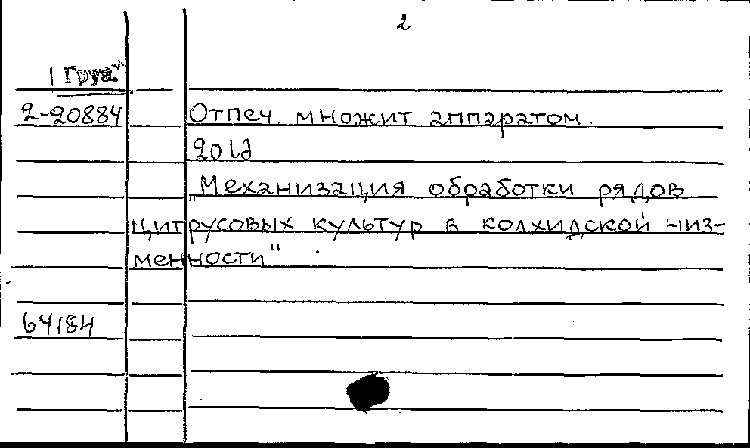 2
"Груз."
2-20884 Отпеч. множит аппаратом.
"Механизация обработки рядов
цитрусовых культур в колхидской низ-
менности"
64184